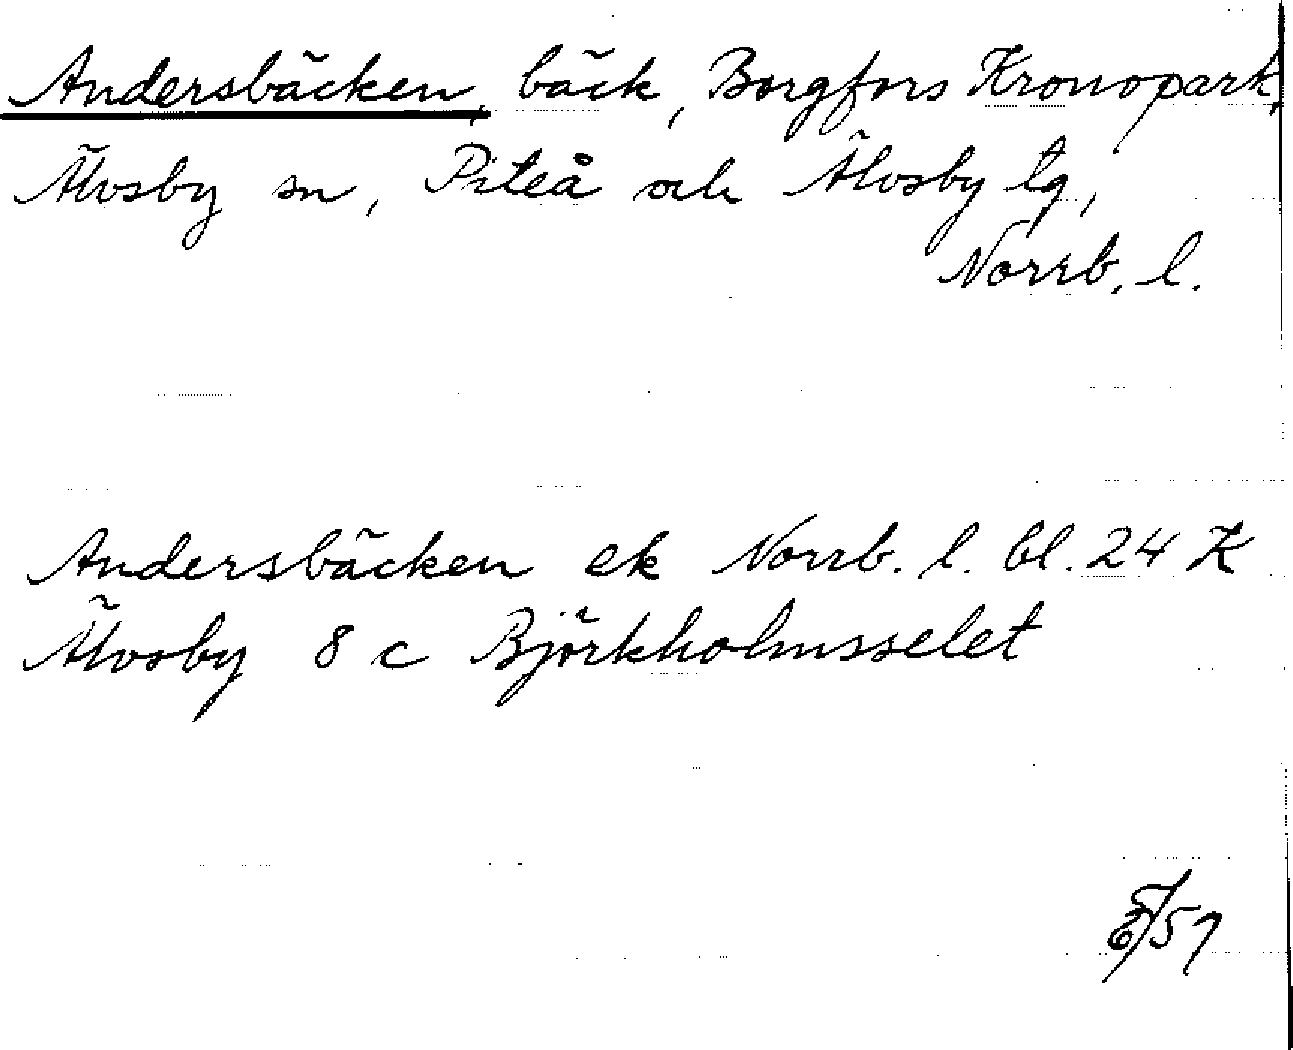 Andersbäcken, bäck, Borgfors Kronopark,
Älvsby sn, Piteå och Älvsby tg,
Norrb. l.
Andersbäcken ek Norrb. l. bl. 24 K
Älvsby 8 c Björkholmsselet